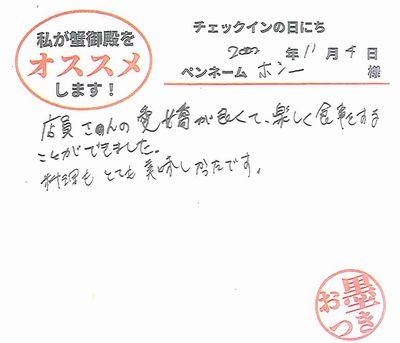 私が蟹御殿を
オススメ
します!
チェックインの日にち
年11月4日
ペンネーム ホシー 様
店員さんの愛嬌が良くて、楽しく食事をする
ことができました。
料理もとても美味しかったです。
お墨つき